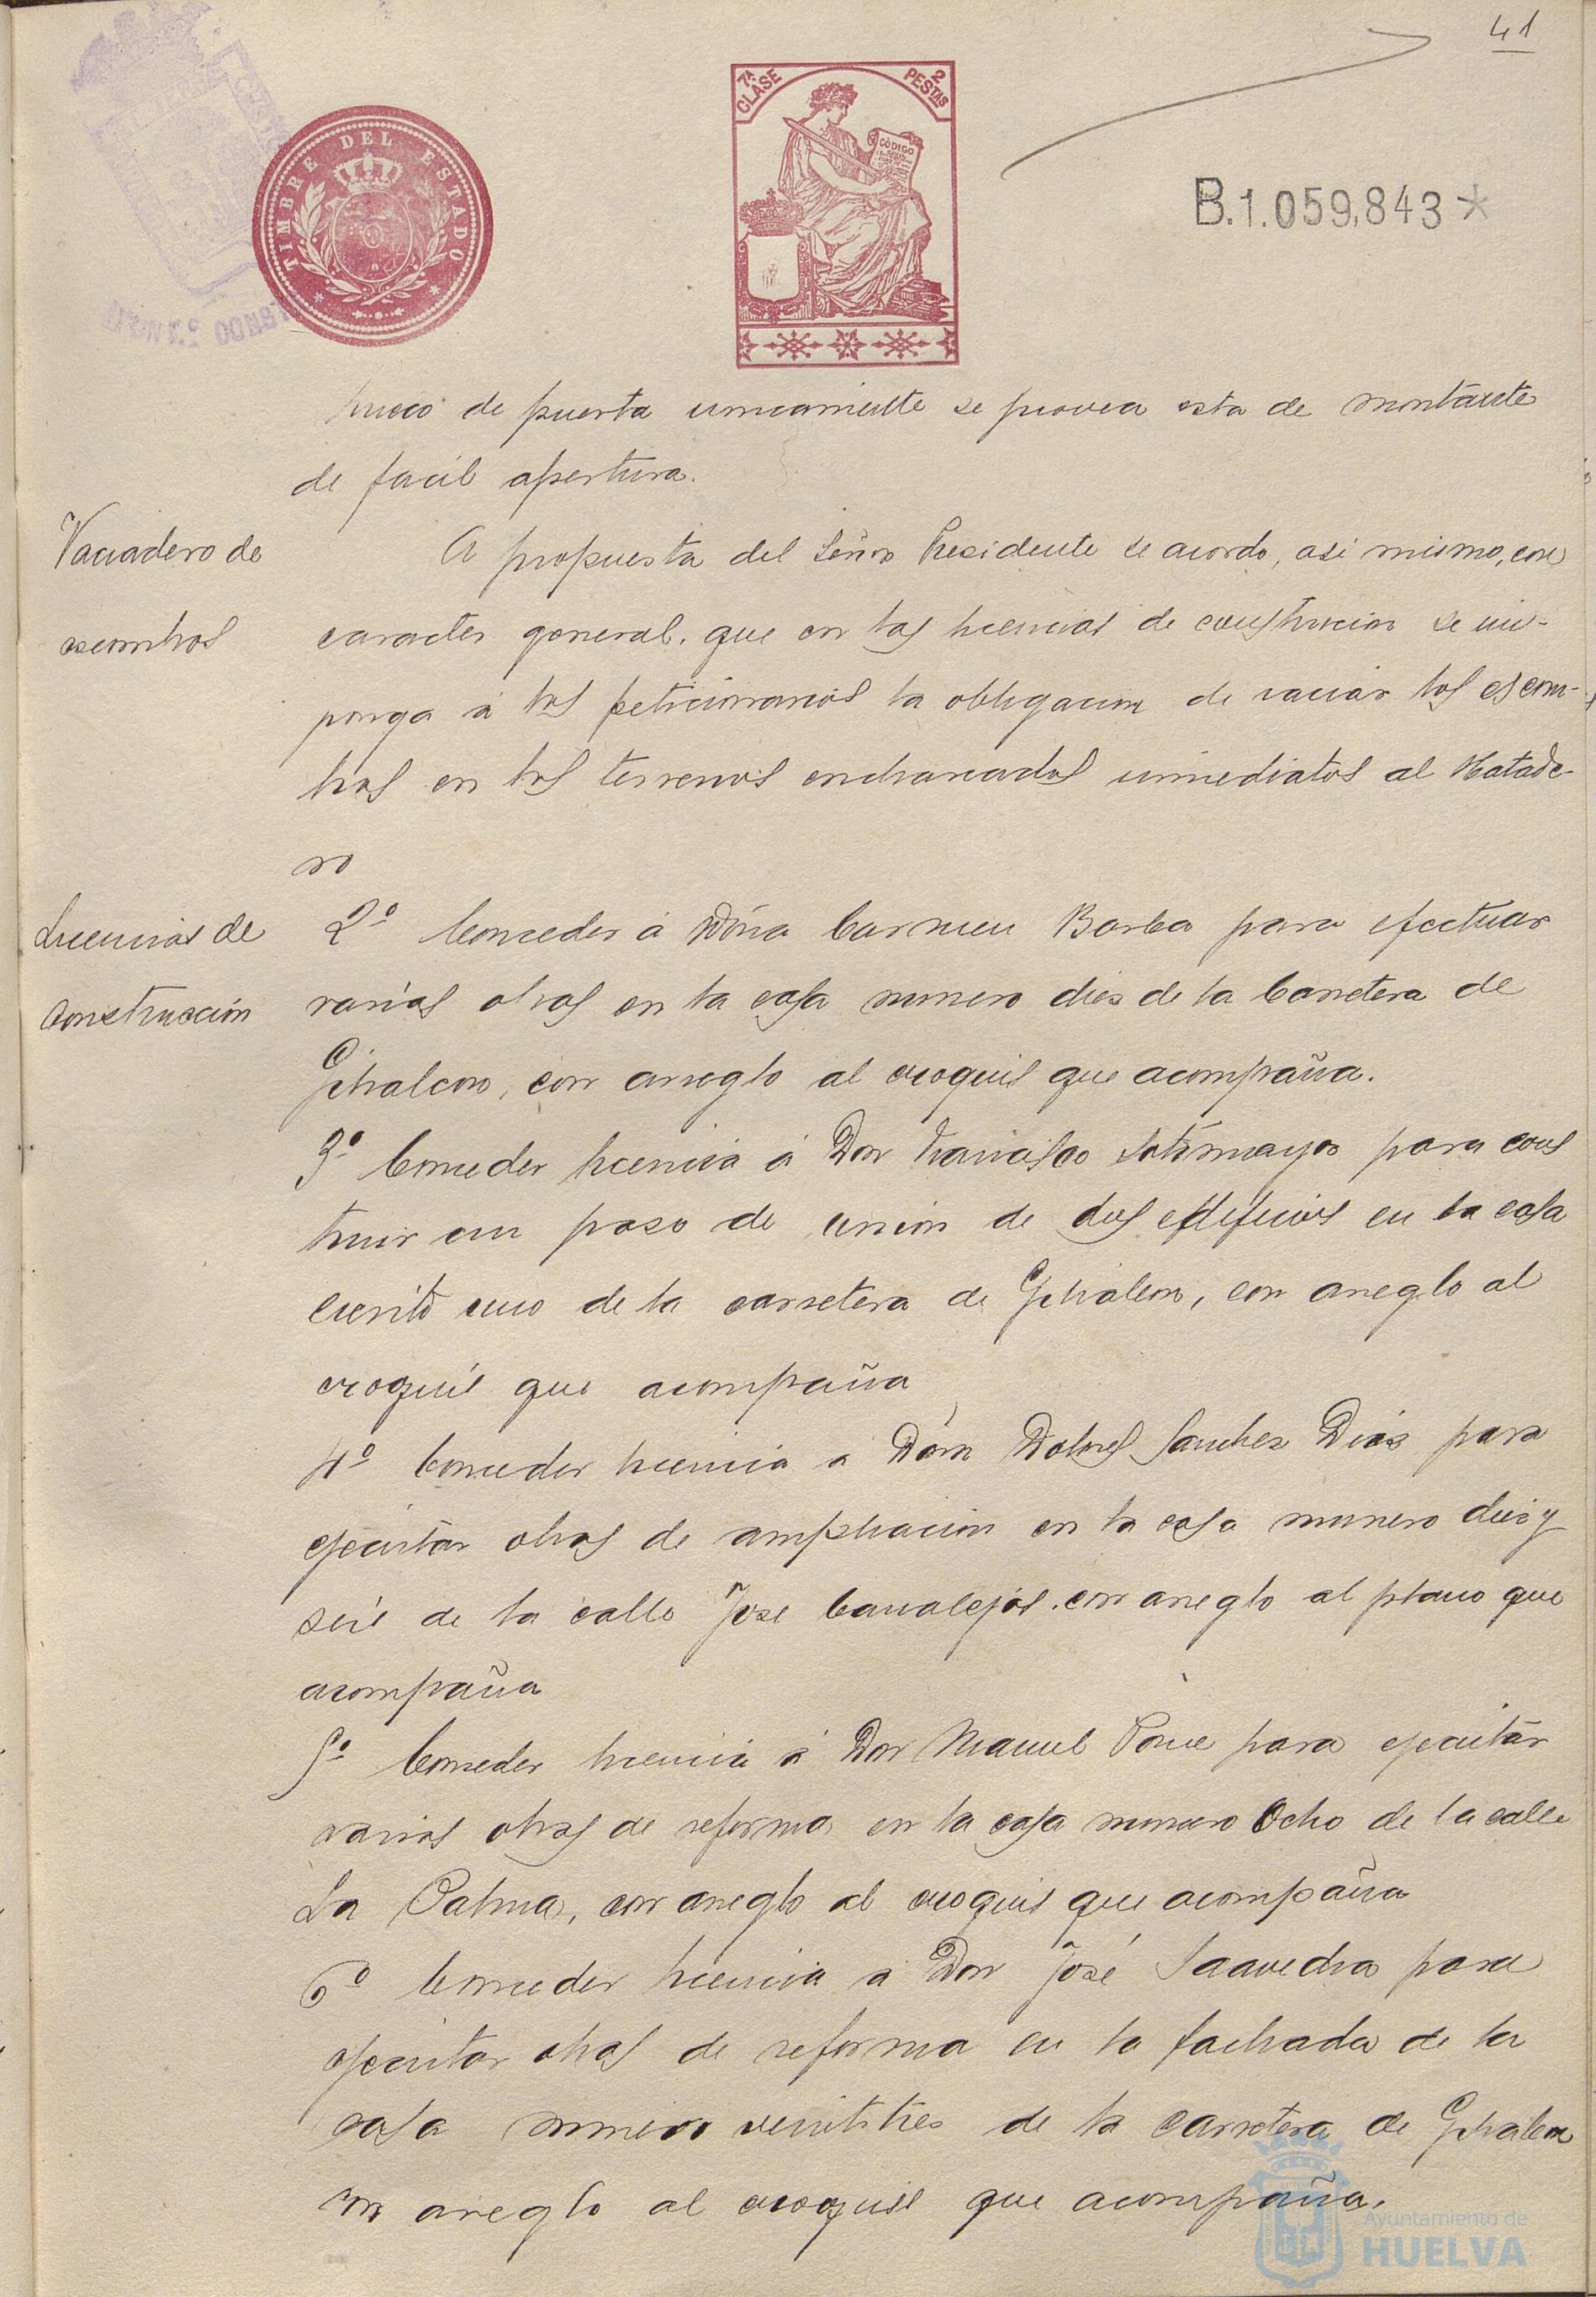 41
TIMBRE DEL ESTADO
7ª CLASE
2 PESTAS
CÓDIGO
B.1.059,843*
hueco de puerta unicamente se provea esta de montante
de facil apertura.
Vaciadero de
escombros
A propuesta del Señor Presidente se acordo, asi mismo, con
caracter general, que en las licencias de construcion se im-
ponga á los peticionarios la obligacion de vaciar los escom-
bros en los terrenos encharcados inmediatos al Matade-
ro
Licencias de
construcción
2º Conceder á Doña Carmen Borba para efectuar
varias obras en la casa numero dies de la Carretera de
Gibraleon, con arreglo al croquis que acompaña.
3º Conceder licencia á Don Francisco Sotomayor para cons
truir un paso de unión de dos edificios en la casa
ciento uno de la carretera de Gibraleon, con arreglo al
croquis que acompaña
4º Conceder licencia a Doña Dolores Sanchez Dias para
ejecutar obras de ampliacion en la casa numero dies y
seis de la calle Jose Canalejas con arreglo al plano que
acompaña
5º Conceder licencia á Don Manuel Ponce para ejecutar
varias obras de reforma en la casa numero Ocho de la calle
La Palma, con arreglo al croquis que acompaña
6º Conceder licencia a Don José Saavedra para
ejecutar obras de reforma en la fachada de la
casa numero veintitres de la carretera de Gibraleon
con arreglo al croquis que acompaña.
Ayuntamiento de
HUELVA